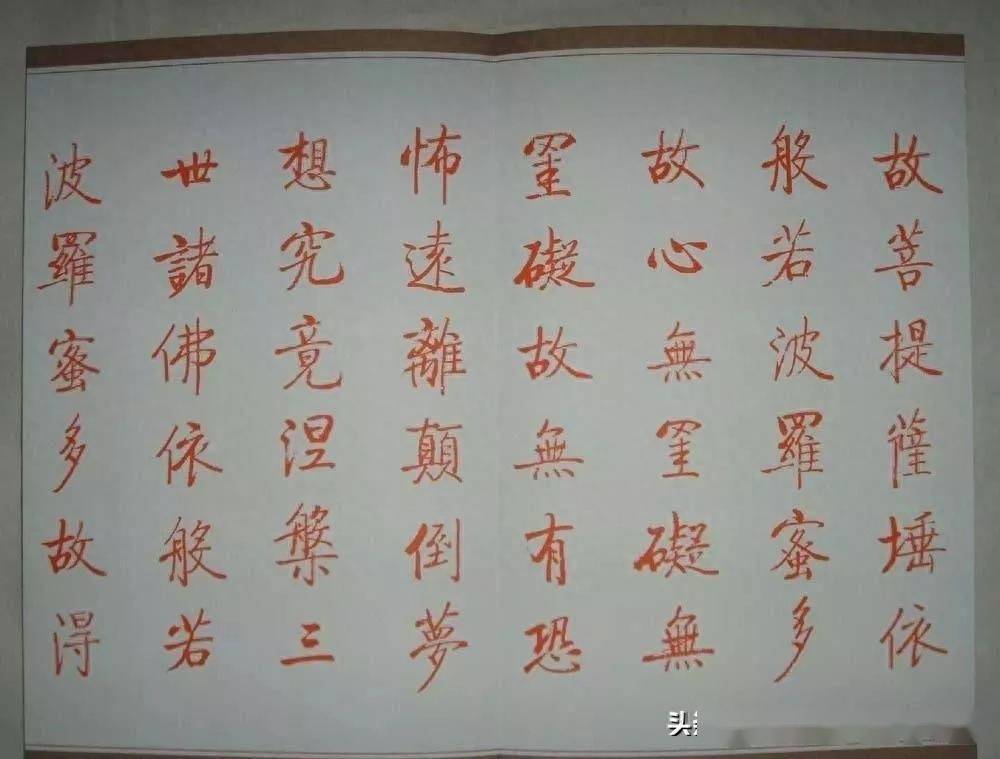 故菩提薩埵依
般若波羅蜜多
故心無罣礙無
罣礙故無有恐
怖遠離顛倒夢
想究竟涅槃三
世諸佛依般若
波羅蜜多故得
头